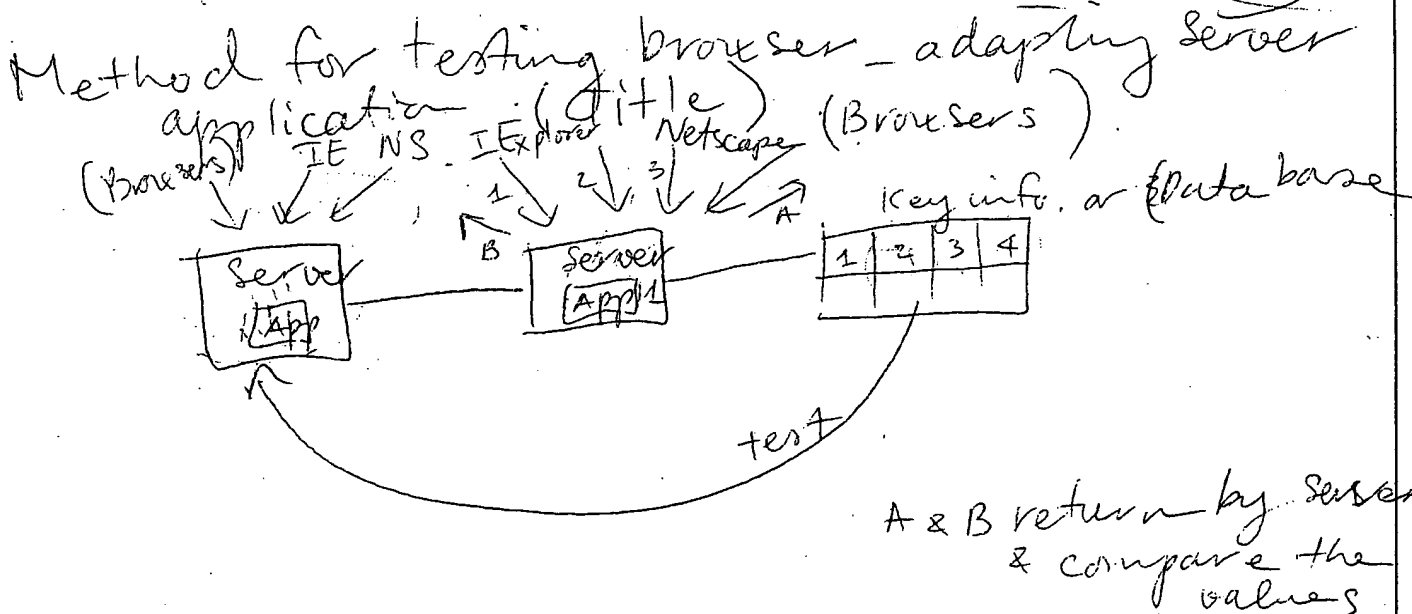 Method for testing browser_adapting Server
application (Title)
(Browsers) IE NS IExplorer Netscape (Browsers)
1 2 3
B A
Key info. or Database
Server Server 1 2 3 4
App App 1
test
A & B return by Server
& compare the
values